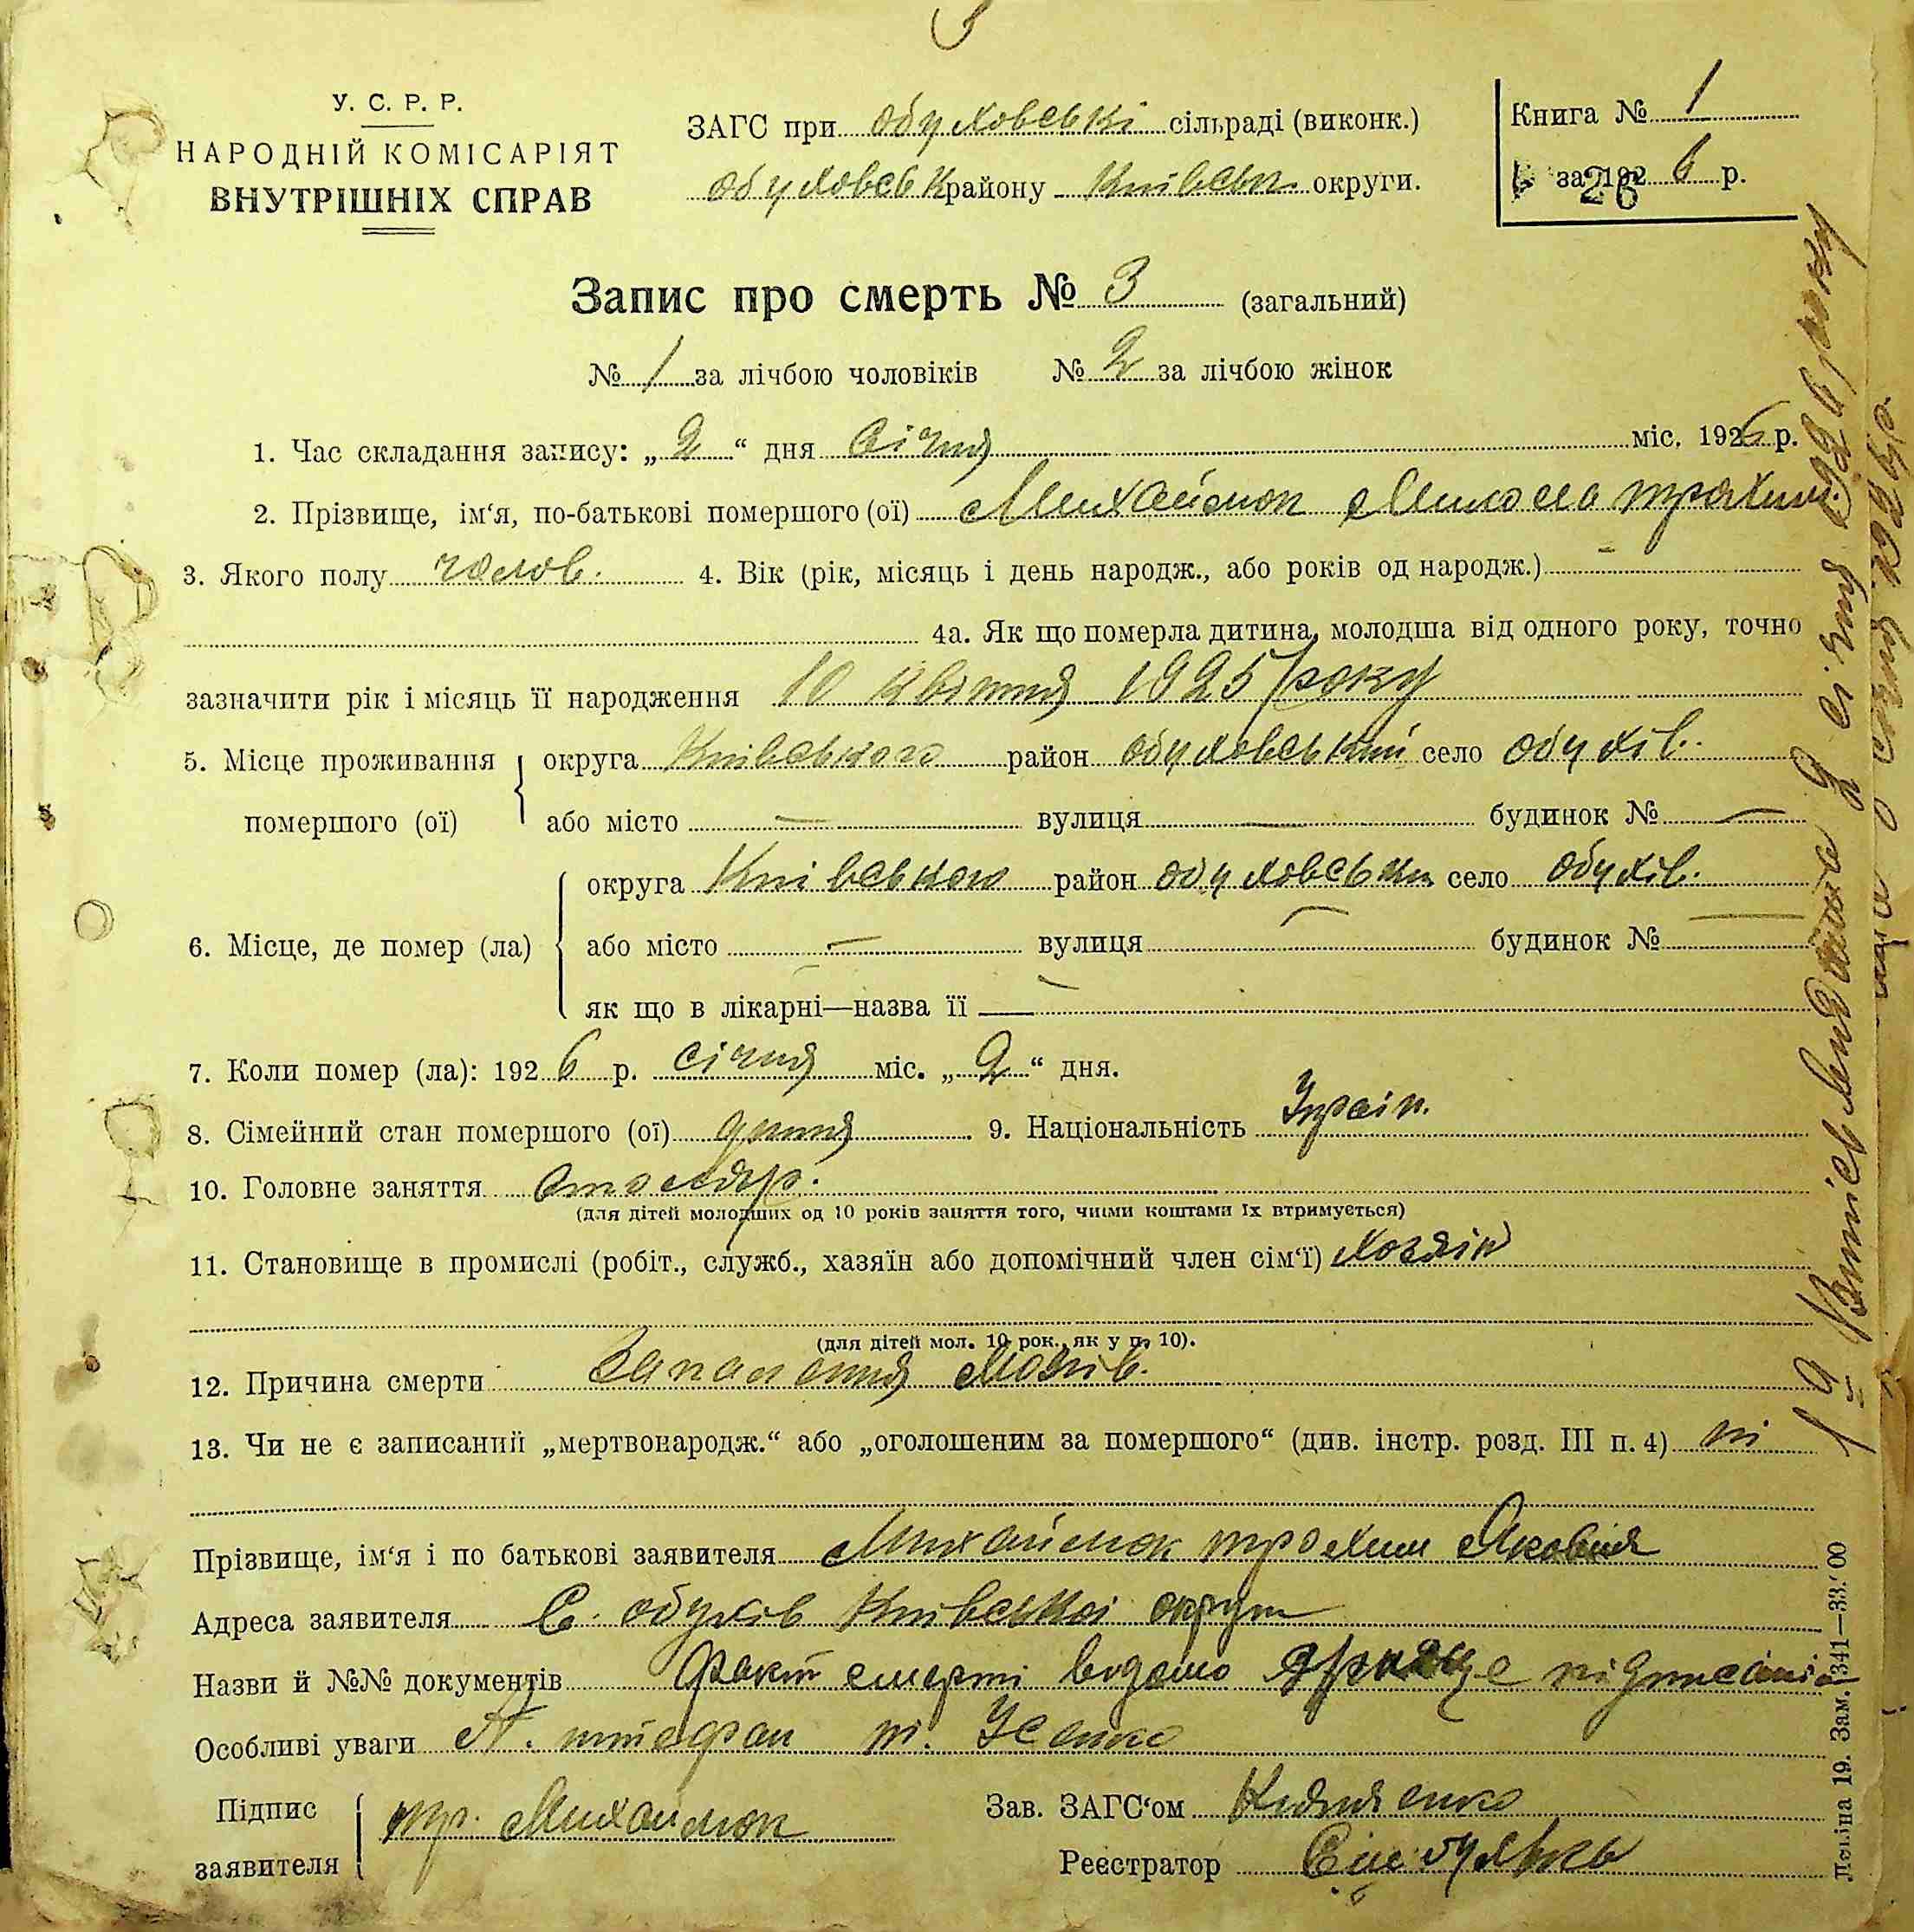 У. С. Р. Р.
НАРОДНІЙ КОМІСАРІЯТ
ВНУТРІШНІХ СПРАВ
ЗАГС при Обуховські сільраді (виконк.)
Обуховськ району Київськ округи.
Книга № 1
за 1926 р.
26
Запис про смерть № 3 (загальний)
№ 1 за лічбою чоловіків № 2 за лічбою жінок
1. Час складання запису: „2“ дня Січня міс. 1926 р.
2. Прізвище, ім‘я, по-батькові помершого (ої) Михайлюк Микола трохим.
3. Якого полу чолов. 4. Вік (рік, місяць і день народж., або років од народж.) —
4а. Як що померла дитина, молодша від одного року, точно
зазначити рік і місяць її народження 10 квітня 1925 року
5. Місце проживання помершого (ої) округа Київського район обуховський село обухів.
або місто — вулиця — будинок № —
6. Місце, де помер (ла) округа Київського район обуховськи село обухів.
або місто — вулиця — будинок № —
як що в лікарні—назва її —
7. Коли помер (ла): 1926 р. січня міс. „2“ дня.
8. Сімейний стан помершого (ої) дитня 9. Національність Украін.
10. Головне заняття столяр.
(для дітей молодших од 10 років заняття того, чиїми коштами їх втримується)
11. Становище в промислі (робіт., служб., хазяїн або допомічний член сім‘ї) хозяін
(для дітей мол. 10 рок., як у п. 10).
12. Причина смерти Запаления Мозків.
13. Чи не є записаний „мертвонародж.“ або „оголошеним за помершого“ (див. інстр. розд. III п. 4) ні
Прізвище, ім‘я і по батькові заявителя Михайлюк трохим Яковів
Адреса заявителя С. обухів Київської округи
Назви й №№ документів Факт смерті
Особливі уваги
Підпис заявителя тр. Михайлюк
Зав. ЗАГС‘ом
Реєстратор
2 січня 1926 року